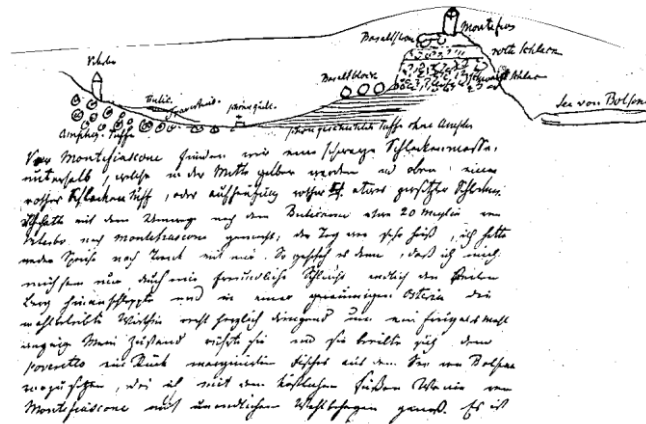 Montefias
Basaltstrom
rothe Schlacken
Viterbo
Basaltblöcke
schwarze Schlacken
See von Bolsena
Bulic.
Travertino
Amphig. Tuffe
schön geschichtete Tuffe ohne Amphig
Vor Montefiascone finden wir eine schwarze Schlackenmasse
unterhalb, welche in der Mitte gelber werden und oben einen
rother Schlacken Tuff, oder Anhäufung rother etwas Schlacken
Ich hatte mit dem Umweg nach dem Bulicame etwa 20 Meglien von
Viterbo nach Montefiascone gemacht, der Tag war sehr heiß, ich hatte
weder Speise noch Trank mit mir. So geschah es denn, daß ich mich
durch eine freundliche Schlucht endlich den steilen
Berg hinaufschleppte und in einer geräumigen Osteria die
wohlbeleibte Wirthin recht herzlich dringend um ein Mahl
Mein Zustand rührte sie und sie beeilte sich, dem
poveretto ein Stück marginirten Fisches aus dem See von Bolsena
vorzusetzen, das ich mit dem köstlichen süßen Weine von
Montefiascone mit unendlichem Wohlbehagen genoß. Es ist